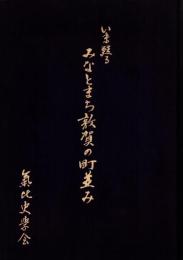 いま甦る
みなとまち敦賀の町並み
氣比史學会